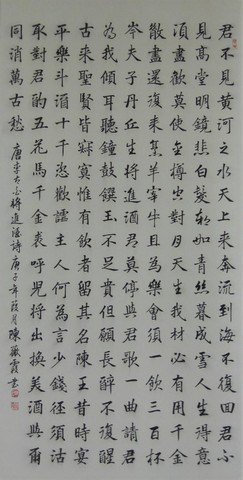 君不見黃河之水天上來奔流到海不復回君不
見高堂明鏡悲白髮朝如青絲暮成雪人生得意
須盡歡莫使金樽空對月天生我材必有用千金
散盡還復來烹羊宰牛且為樂會須一飲三百杯
岑夫子丹丘生將進酒君莫停與君歌一曲請君
為我傾耳聽鐘鼓饌玉不足貴但願長醉不復醒
古來聖賢皆寂寞惟有飲者留其名陳王昔時宴
平樂斗酒十千恣歡謔主人何為言少錢徑須沽
取對君酌五花馬千金裘呼兒將出換美酒與爾
同消萬古愁 唐李太白將進酒詩 庚子年葭月 陳霞書